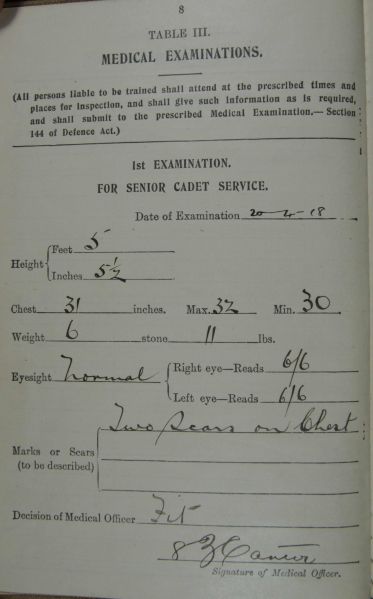 8
TABLE III.
MEDICAL EXAMINATIONS.
(All persons liable to be trained shall attend at the prescribed times and
places for inspection, and shall give such information as is required,
and shall submit to the prescribed Medical Examination.—Section
144 of Defence Act.)
1st EXAMINATION.
FOR SENIOR CADET SERVICE.
Date of Examination 20-4-18
Height { Feet 5
Inches 5½
Chest 31 inches. Max. 32 Min. 30
Weight 6 stone 11 lbs.
Eyesight Normal { Right eye—Reads 6/6
Left eye—Reads 6/6
Two Scars on Chest
Marks or Scars
(to be described)
Decision of Medical Officer Fit
Signature of Medical Officer.